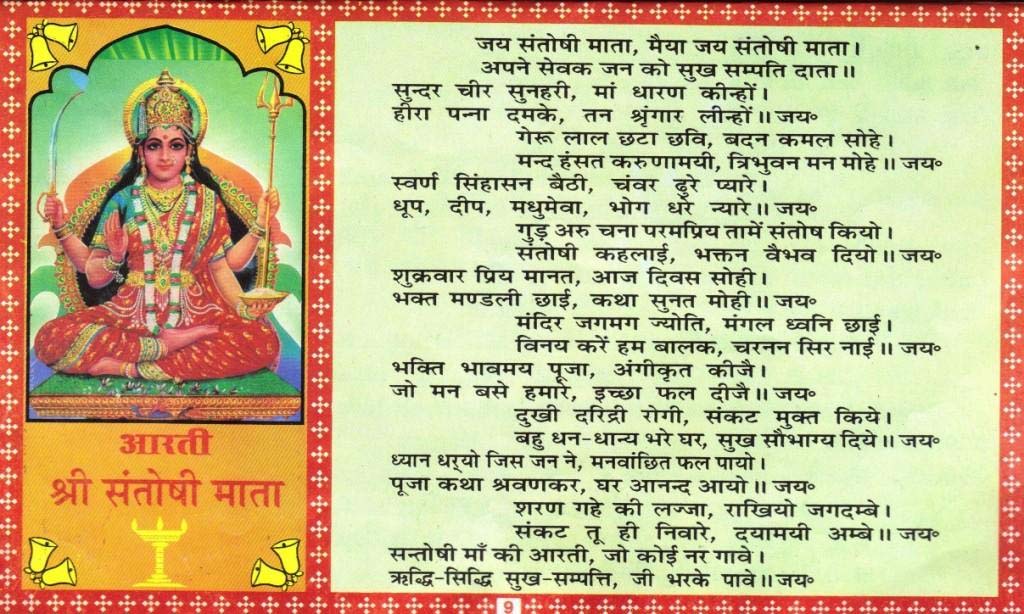 आरती
श्री संतोषी माता
जय संतोषी माता, मैया जय संतोषी माता।
अपने सेवक जन को सुख सम्पति दाता॥
सुन्दर चीर सुनहरी, मां धारण कीन्हों।
हीरा पन्ना दमके, तन श्रृंगार लीन्हों॥ जय॰
गेरू लाल छटा छवि, बदन कमल सोहे।
मन्द हंसत करुणामयी, त्रिभुवन मन मोहे॥ जय॰
स्वर्ण सिंहासन बैठी, चंवर ढुरे प्यारे।
धूप, दीप, मधुमेवा, भोग धरे न्यारे॥ जय॰
गुड़ अरु चना परमप्रिय तामें संतोष कियो।
संतोषी कहलाई, भक्तन वैभव दियो॥ जय॰
शुक्रवार प्रिय मानत, आज दिवस सोही।
भक्त मण्डली छाई, कथा सुनत मोही॥ जय॰
मंदिर जगमग ज्योति, मंगल ध्वनि छाई।
विनय करें हम बालक, चरनन सिर नाई॥ जय॰
भक्ति भावमय पूजा, अंगीकृत कीजै।
जो मन बसे हमारे, इच्छा फल दीजै॥ जय॰
दुखी दरिद्री रोगी, संकट मुक्त किये।
बहु धन-धान्य भरे घर, सुख सौभाग्य दिये॥ जय॰
ध्यान धर्‌यो जिस जन ने, मनवांछित फल पायो।
पूजा कथा श्रवणकर, घर आनन्द आयो॥ जय॰
शरण गहे की लज्जा, राखियो जगदम्बे।
संकट तू ही निवारे, दयामयी अम्बे॥ जय॰
सन्तोषी माँ की आरती, जो कोई नर गावे।
ऋद्धि-सिद्धि सुख-सम्पत्ति, जी भरके पावे॥ जय॰
9